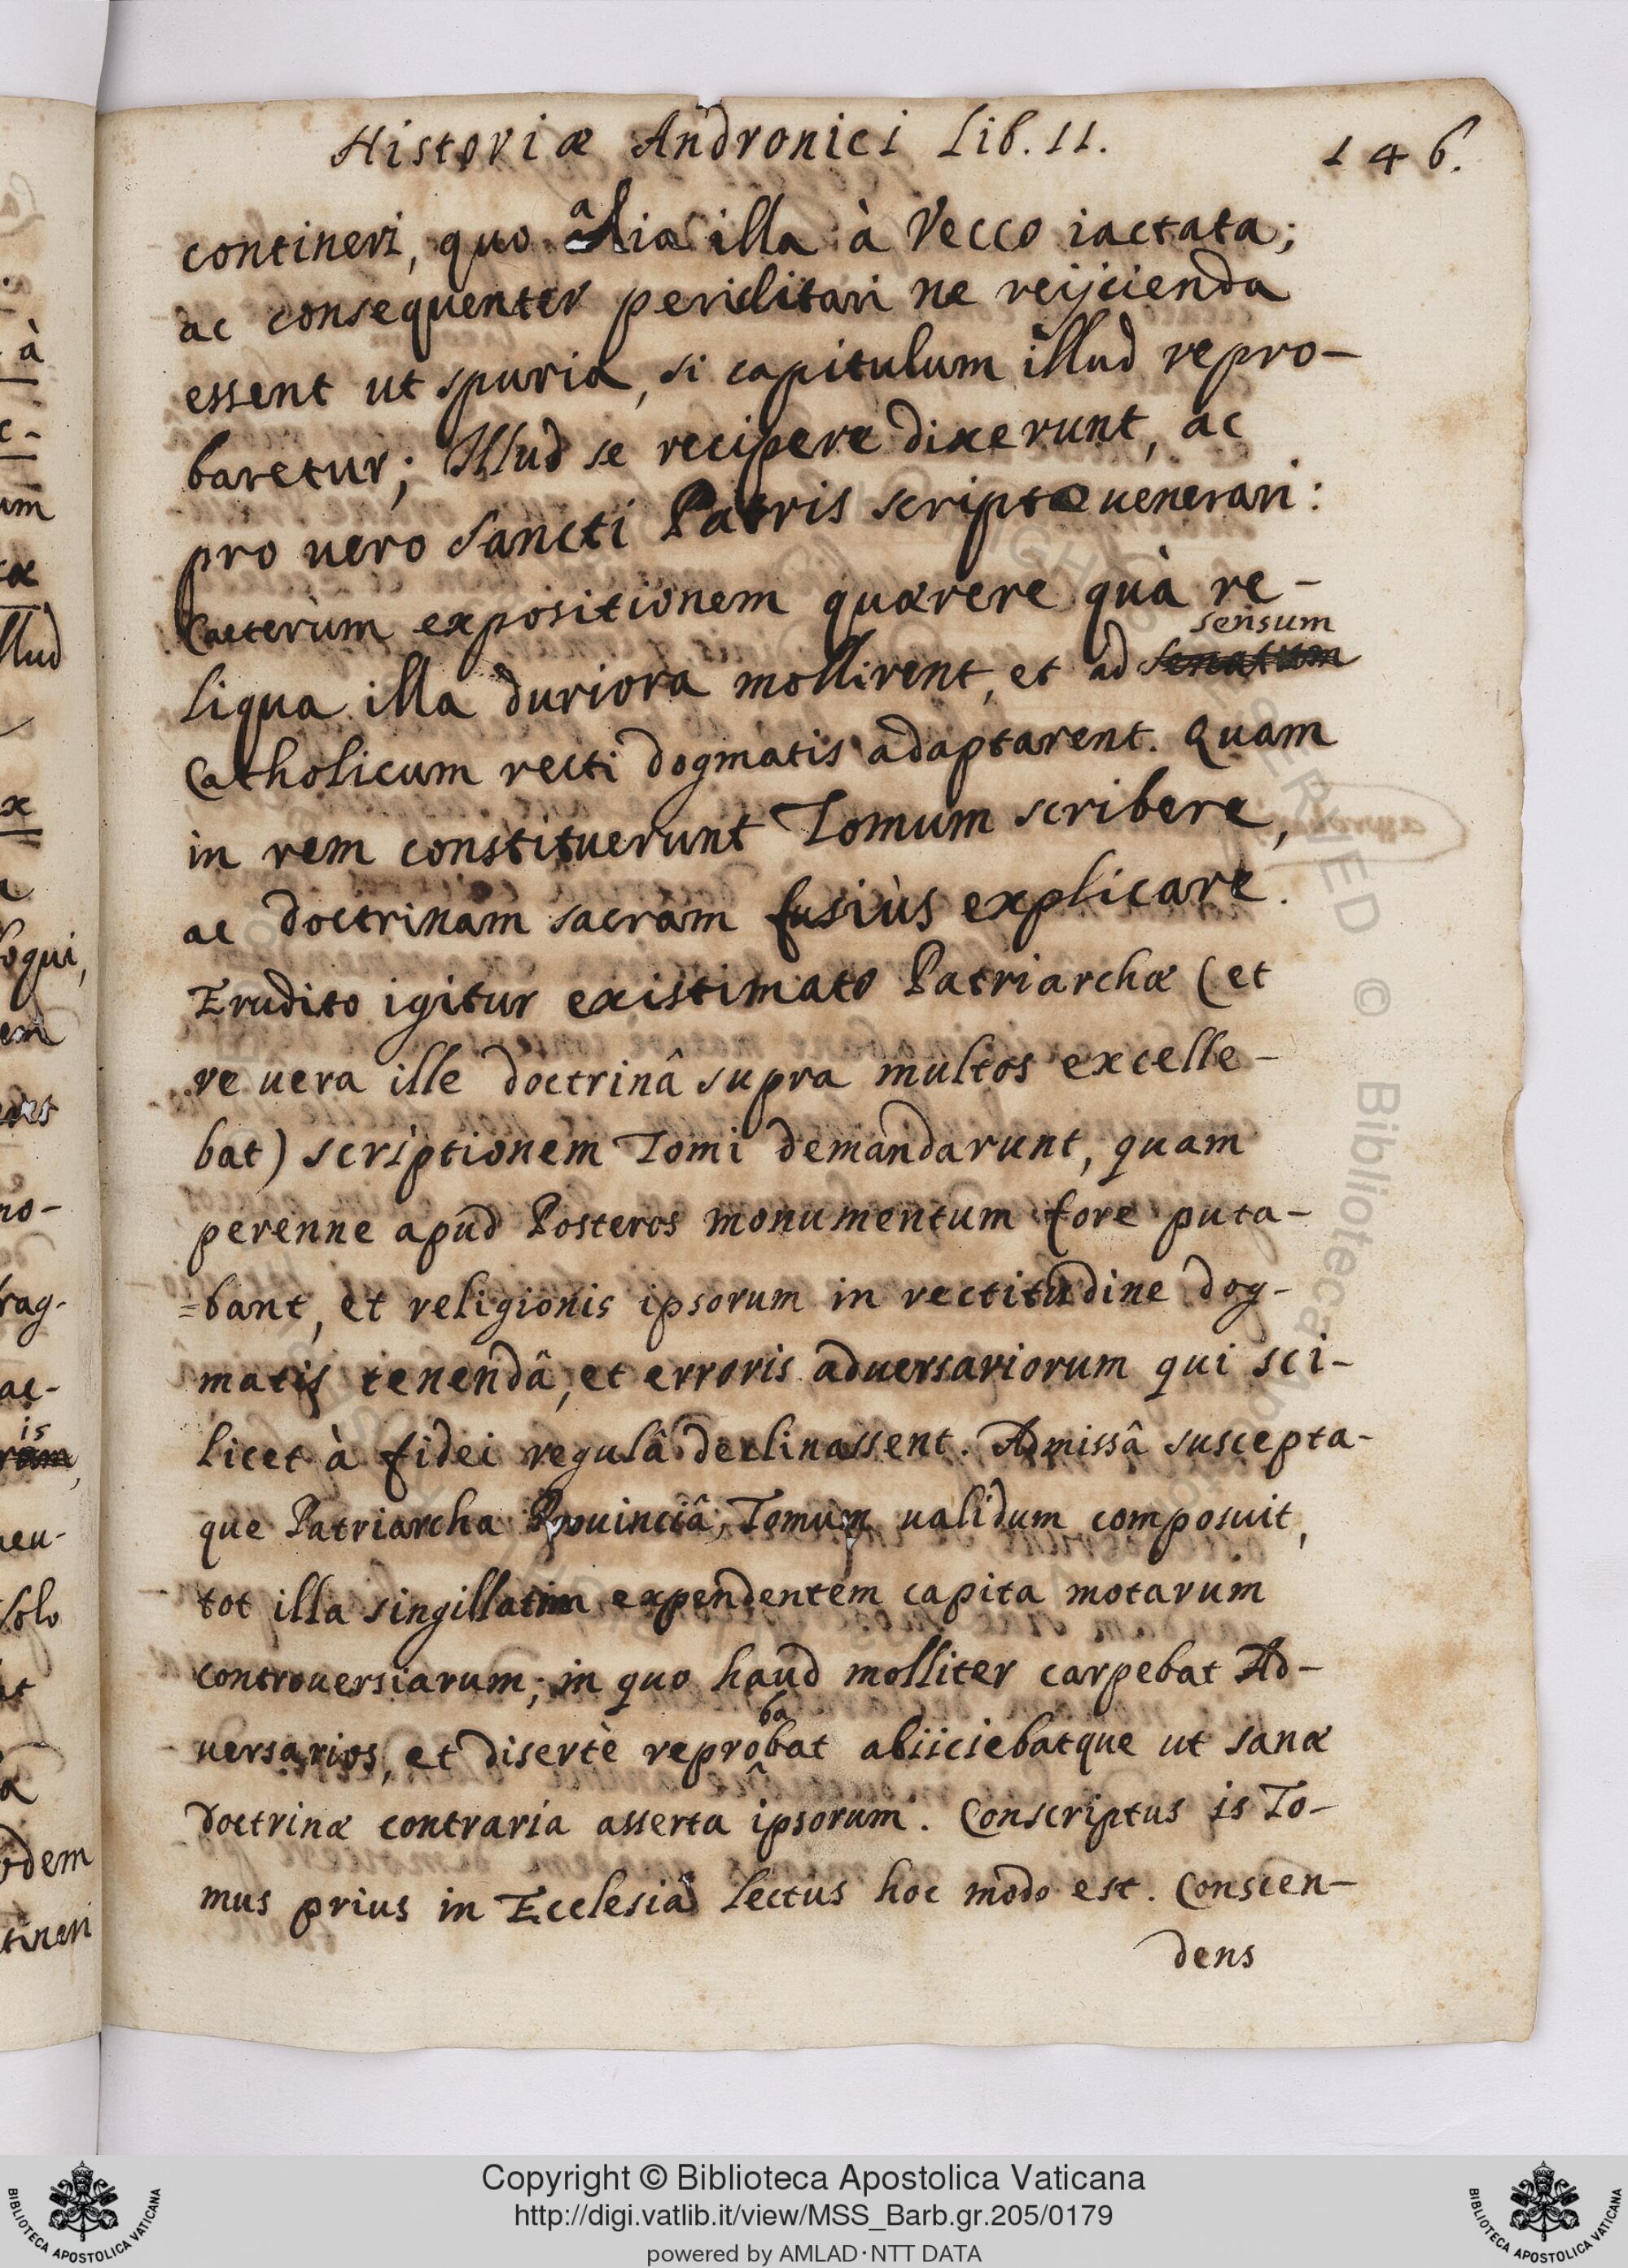 Historiæ Andronici Lib. II.
146.
contineri, quo alia illa à Vecco iactata;
ac consequenter periclitari ne reijcienda
essent ut spuria, si capitulum illud repro-
baretur; Illud se recipere dixerunt, ac
pro uero Sancti Patris scripto uenerari:
Cæterùm expositionem quærere quà re-
liqua illa duriora mollirent, et ad sensum
Catholicum recti dogmatis adaptarent. Quam
in rem constituerunt Tomum scribere,
ac doctrinam sacram fusiùs explicare.
Erudito igitur existimato Patriarchæ (et
re uera ille doctrinâ supra multos excelle-
bat) scriptionem Tomi demandarunt, quam
perenne apud Posteros monumentum fore puta-
=bant, et religionis ipsorum in rectitudine dog-
matis tenendâ, et erroris aduersariorum qui sci-
licet à fidei regulâ declinassent. Admissâ suscepta-
que Patriarcha Prouinciâ, Tomum ualidum composuit,
tot illa singillatim expendentem capita motarum
controuersiarum; in quo haud molliter carpebat Ad-
uersarios, et disertè reprobabat abiiciebatque ut sanæ
doctrinæ contraria asserta ipsorum. Conscriptus is To-
mus prius in Ecclesia lectus hoc modo est. Conscen-
dens
à
um
llud
oqui,
em
no-
rag-
ac-
is
neu-
solo
odem
tineri
Copyright © Biblioteca Apostolica Vaticana
http://digi.vatlib.it/view/MSS_Barb.gr.205/0179
powered by AMLAD·NTT DATA
BIBLIOTECA APOSTOLICA VATICANA
BIBLIOTECA APOSTOLICA VATICANA